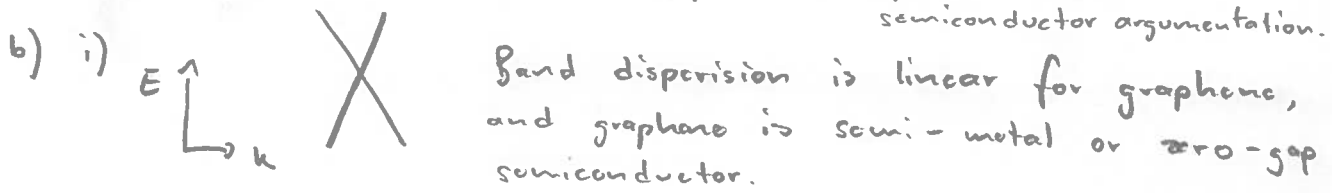 semiconductor argumentation.
b) i) E k Band dispersion is linear for graphene,
and graphene is semi-metal or zero-gap
semiconductor.